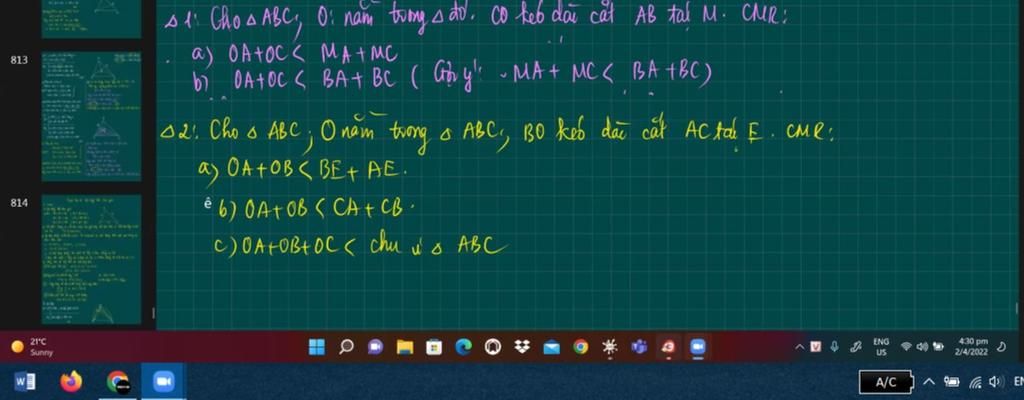 Δ1: Cho Δ ABC, O: nằm trong Δ đó. CO kéo dài cắt AB tại M. CMR:
a) OA+OC < MA+MC
b) OA+OC < BA+BC ( Gợi ý: MA+MC < BA+BC)
813
Δ2: Cho Δ ABC; O nằm trong Δ ABC, BO kéo dài cắt AC tại E. CMR:
a) OA+OB < BE+AE.
ê b) OA+OB < CA+CB.
814
c) OA+OB+OC < chu vi Δ ABC
21°C
Sunny
ENG
US
4:30 pm
2/4/2022
A/C
EN